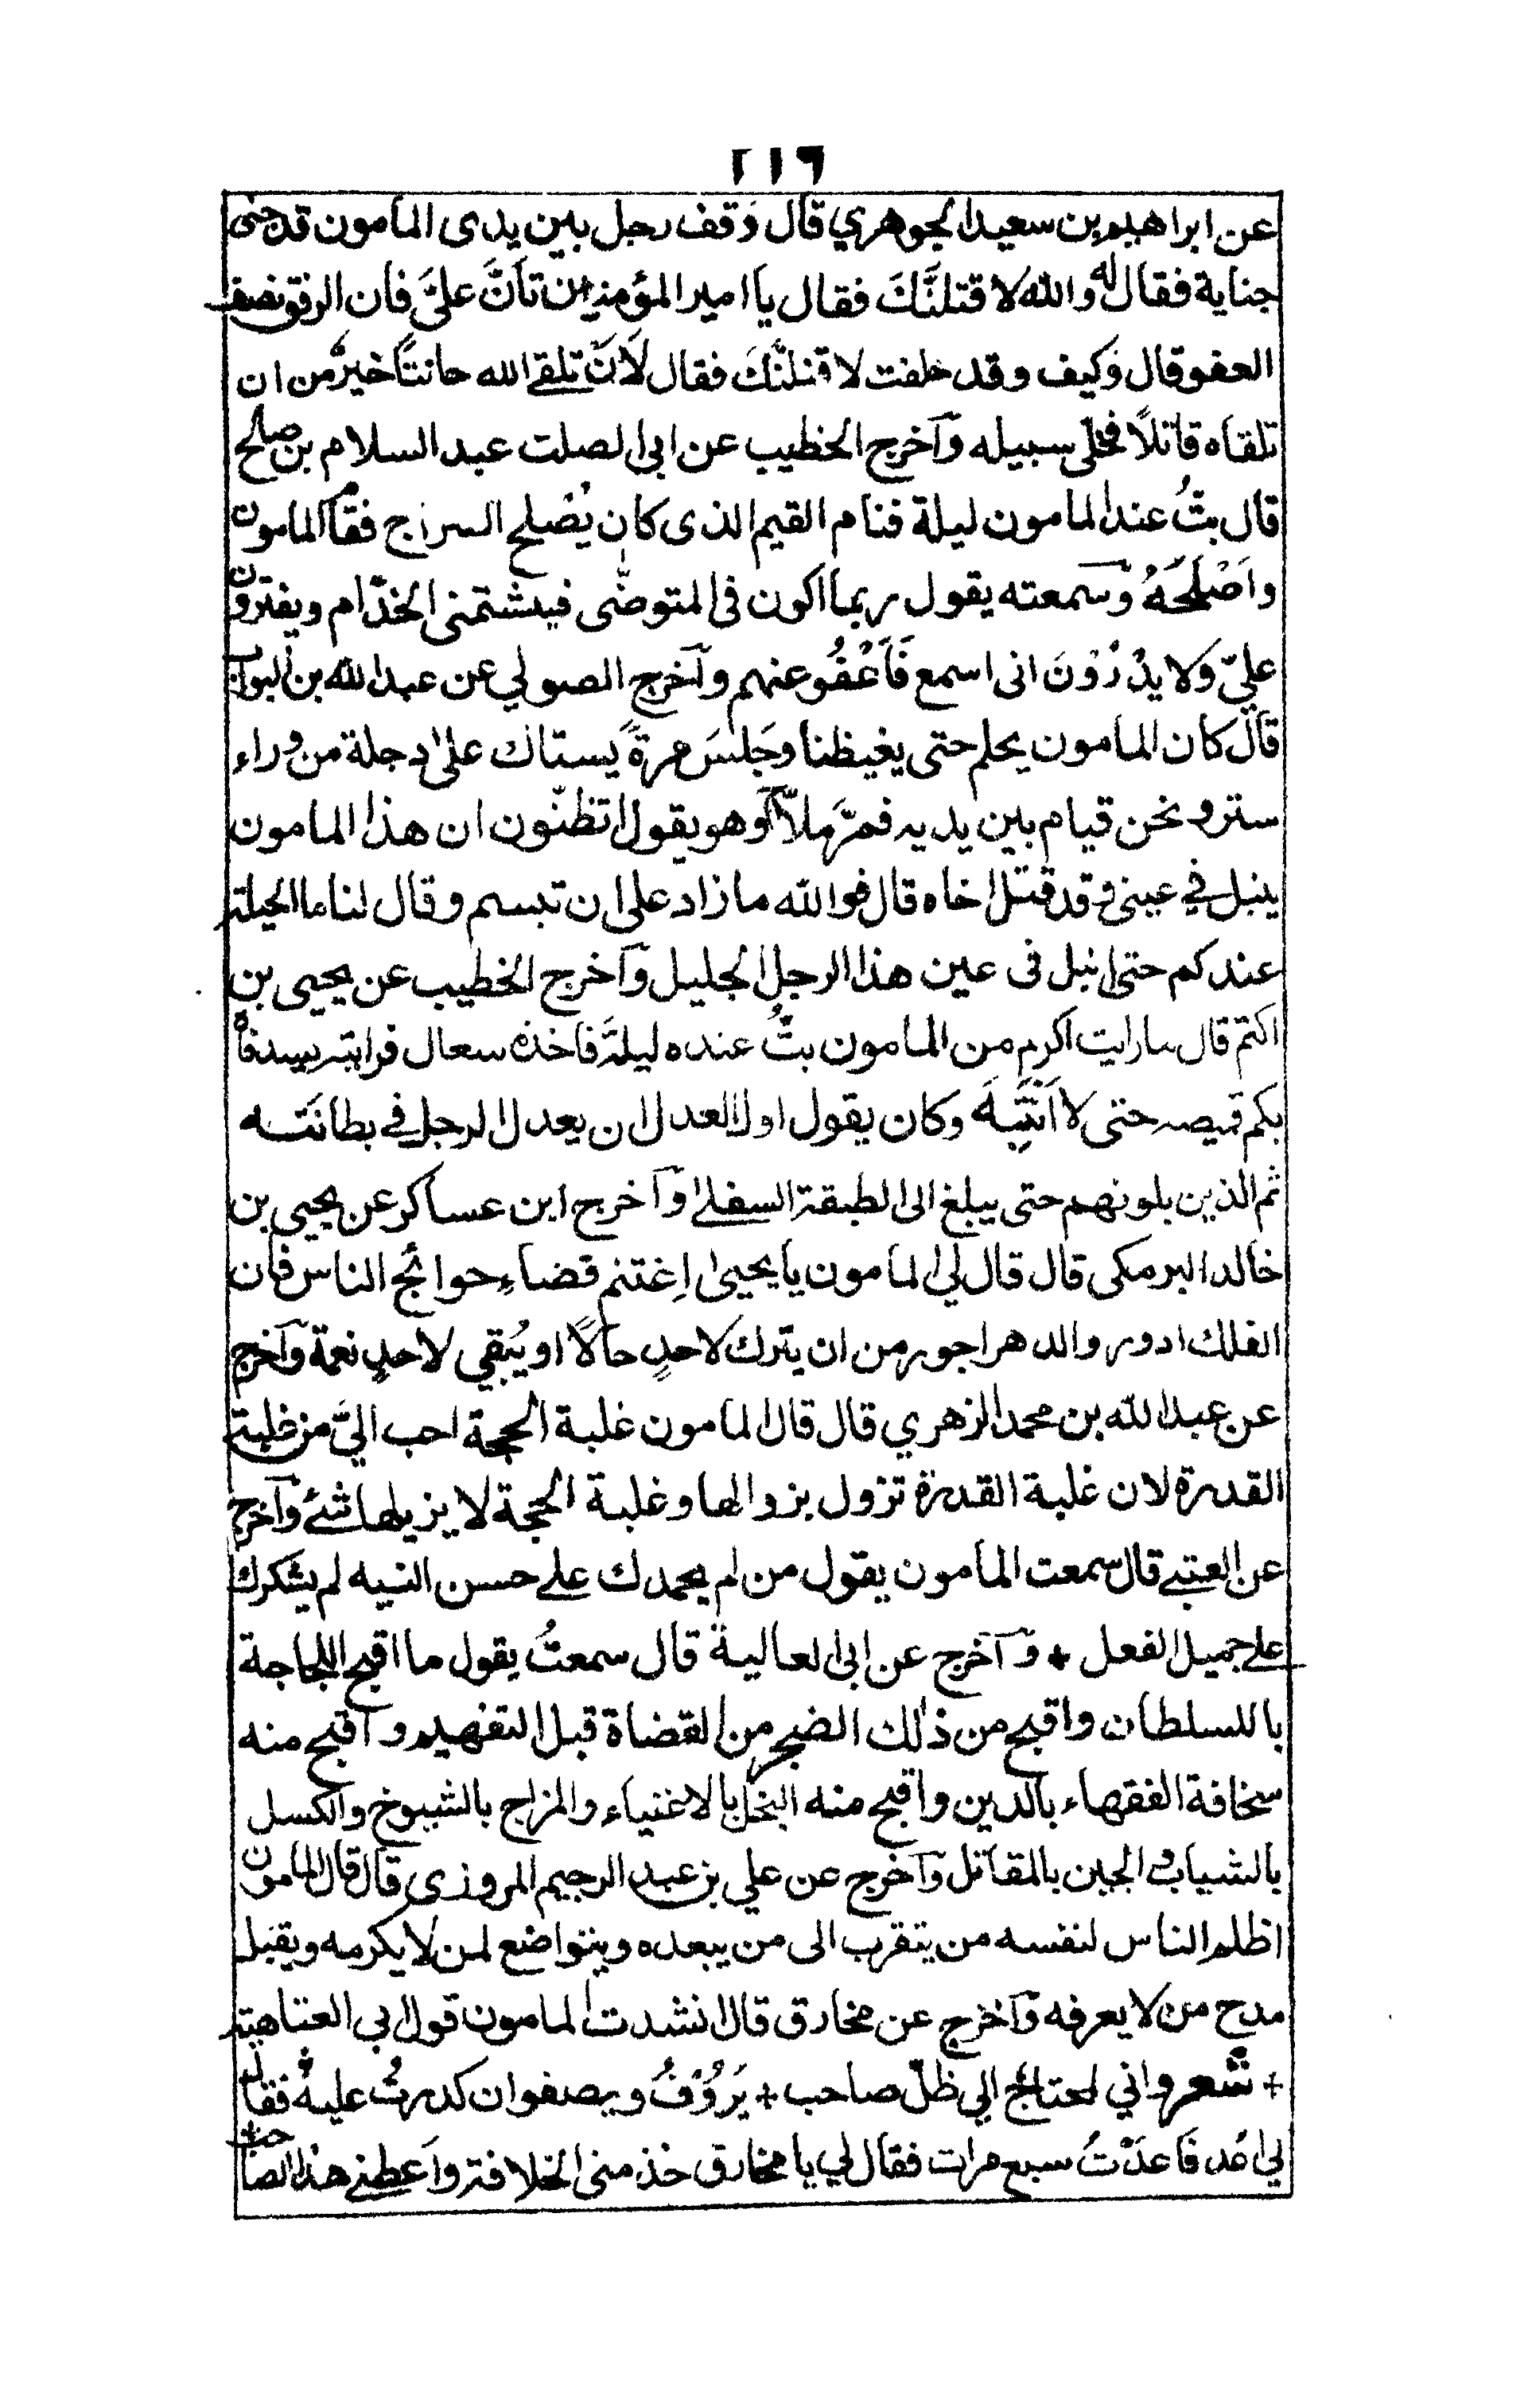 ٢١٦
عن ابراهيم بن سعيد الجوهري قال وقف رجل بين يدى المامون قد جنى
جناية فقال له والله لاقتلنَّكَ فقال يا امير المؤمنين تأنَّ علىَّ فان الرفق نصف
العفو قال وكيف وقد حلفت لاقتلنَّكَ فقال لَاَنْ تلقے الله حانثًا خيرٌ من ان
تلقاه قاتلاً فخلّى سبيله وآخرج الخطيب عن ابى الصلت عبد السلام بن صلح
قال بتُّ عند المامون ليلة فنام القيم الذى كان يُصْلح السراج فقام المامون
واَصْلَحَهُ وسمعته يقول ربما اكون فى المتوضّى فيشتمنى الخدّام ويفترون
عليّ وَلا يدْرُوْنَ انى اسمع فَاَعْفُو عنهم وآخرج الصولي عن عبد الله بن البواب
قال كان المامون يحلم حتى يغيظنا وجَلَسَ مرةً يستاك على دجلة من وراء
ستر ونحن قيام بين يديه فمرَّ ملّاح وهو يقول اتظنّون ان هذا المامون
ينبل في عينى وقد قتل اخاه قال فوالله ما زاد على ان تبسم وقال لنا ما الحيلة
عندكم حتى انبل فى عين هذا الرجل الجليل وآخرج الخطيب عن يحيى بن
اكثم قال ما رايت اكرم من المامون بتُّ عنده ليلةً فاخذه سعال فرايته يسد فاه
بكم قميصه حتى لا اَنْتَبِهَ وكان يقول اول العدل ان يعدل الرجل في بطانَته
ثم الذين يلونهم حتى يبلغ الى الطبقة السفلے وآخرج ابن عساكر عن يحيى بن
خالد البرمكى قال قال لي المامون يا يحيى اِغتنم قضاء حوائج الناس فان
الفلك ادور والدهر اجور من ان يترك لاحدٍ حالًا او يُبقي لاحدٍ نعمة وآخرج
عن عبد الله بن محمد الزهري قال قال المامون غلبة الحجة احب اليَّ من غلبة
القدرة لان غلبة القدرة تزول بزوالها وغلبة الحجة لا يزيلها شئے وآخرج
عن العتبے قال سمعت المامون يقول من لم يحمدك علے حسن النيه لم يشكرك
علے جميل الفعل + وآخرج عن ابى العالية قال سمعتُ يقول ما اقبح اللجاجة
بالسلطان واقبح من ذلك الضجر من القضاة قبل التفهيم واقبح منه
سخافة الفقهاء بالدين واقبح منه البخل بالاغنياء والمزاح بالشيوخ والكسل
بالشباب والجبن بالمقاتل وآخرج عن علي بن عبد الرحيم المروزى قال قال المامون
اظلم الناس لنفسه من يتقرب الى من يبعده ويتواضع لمن لا يكرمه ويقبل
مدح من لا يعرفه وآخرج عن مخارق قال انشدت المامون قول ابي العتاهية
+ شعر واني لمحتاج الي ظلّ صاحب + يَرُوْفُ ويصفو ان كدرتُ عليه فقال
لي اعد فَاَعدْتُ سبع مرات فقال لي يا مخارق خذ منى الخلافة واَعطنے هذا الصاحب